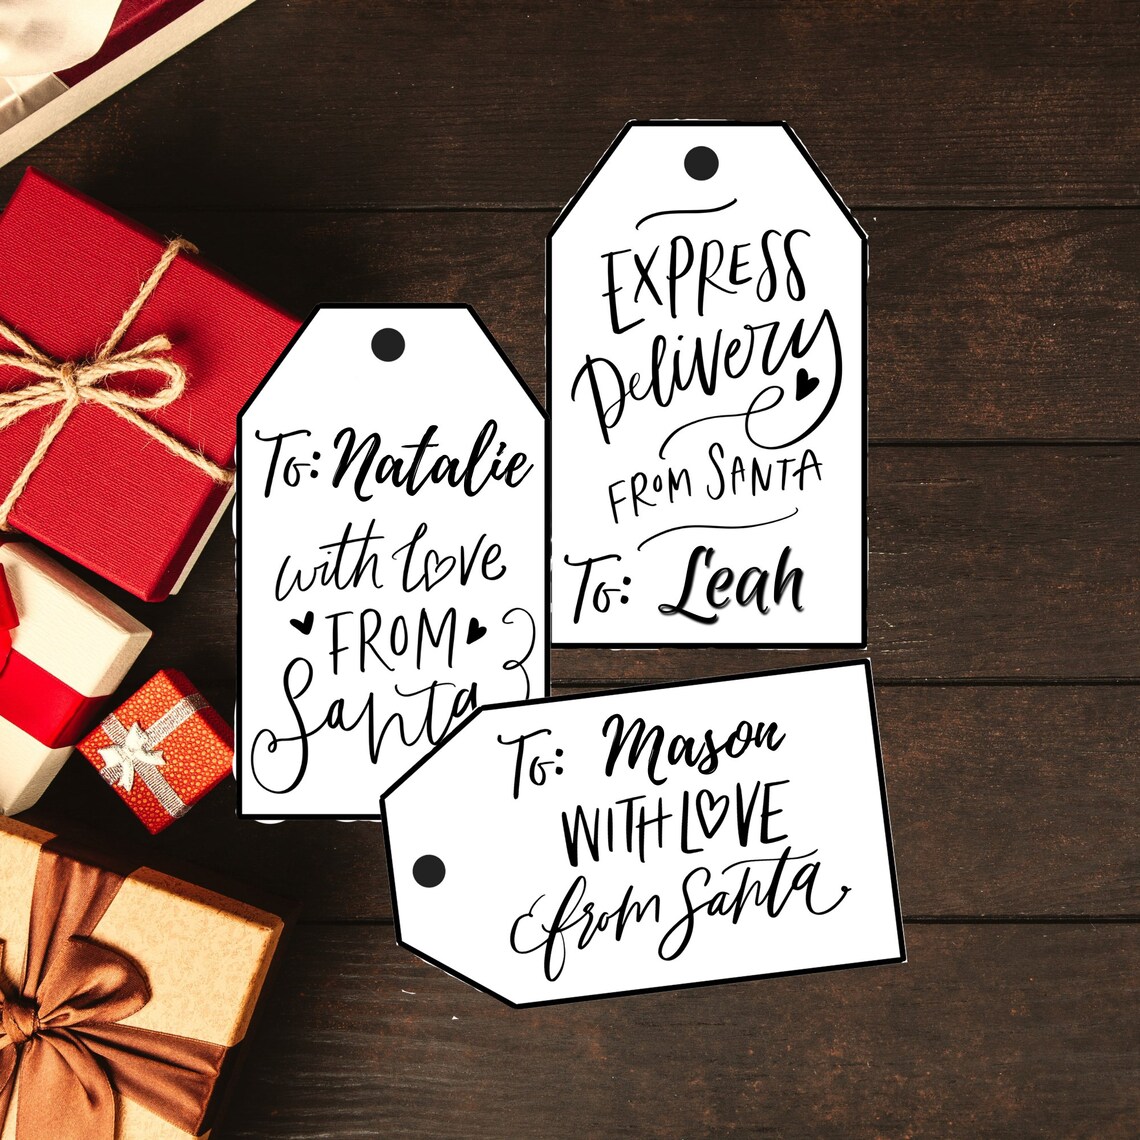 To: Natalie
with love
FROM
Santa
EXPRESS
Delivery
FROM SANTA
To: Leah
To: Mason
WITH LOVE
from Santa